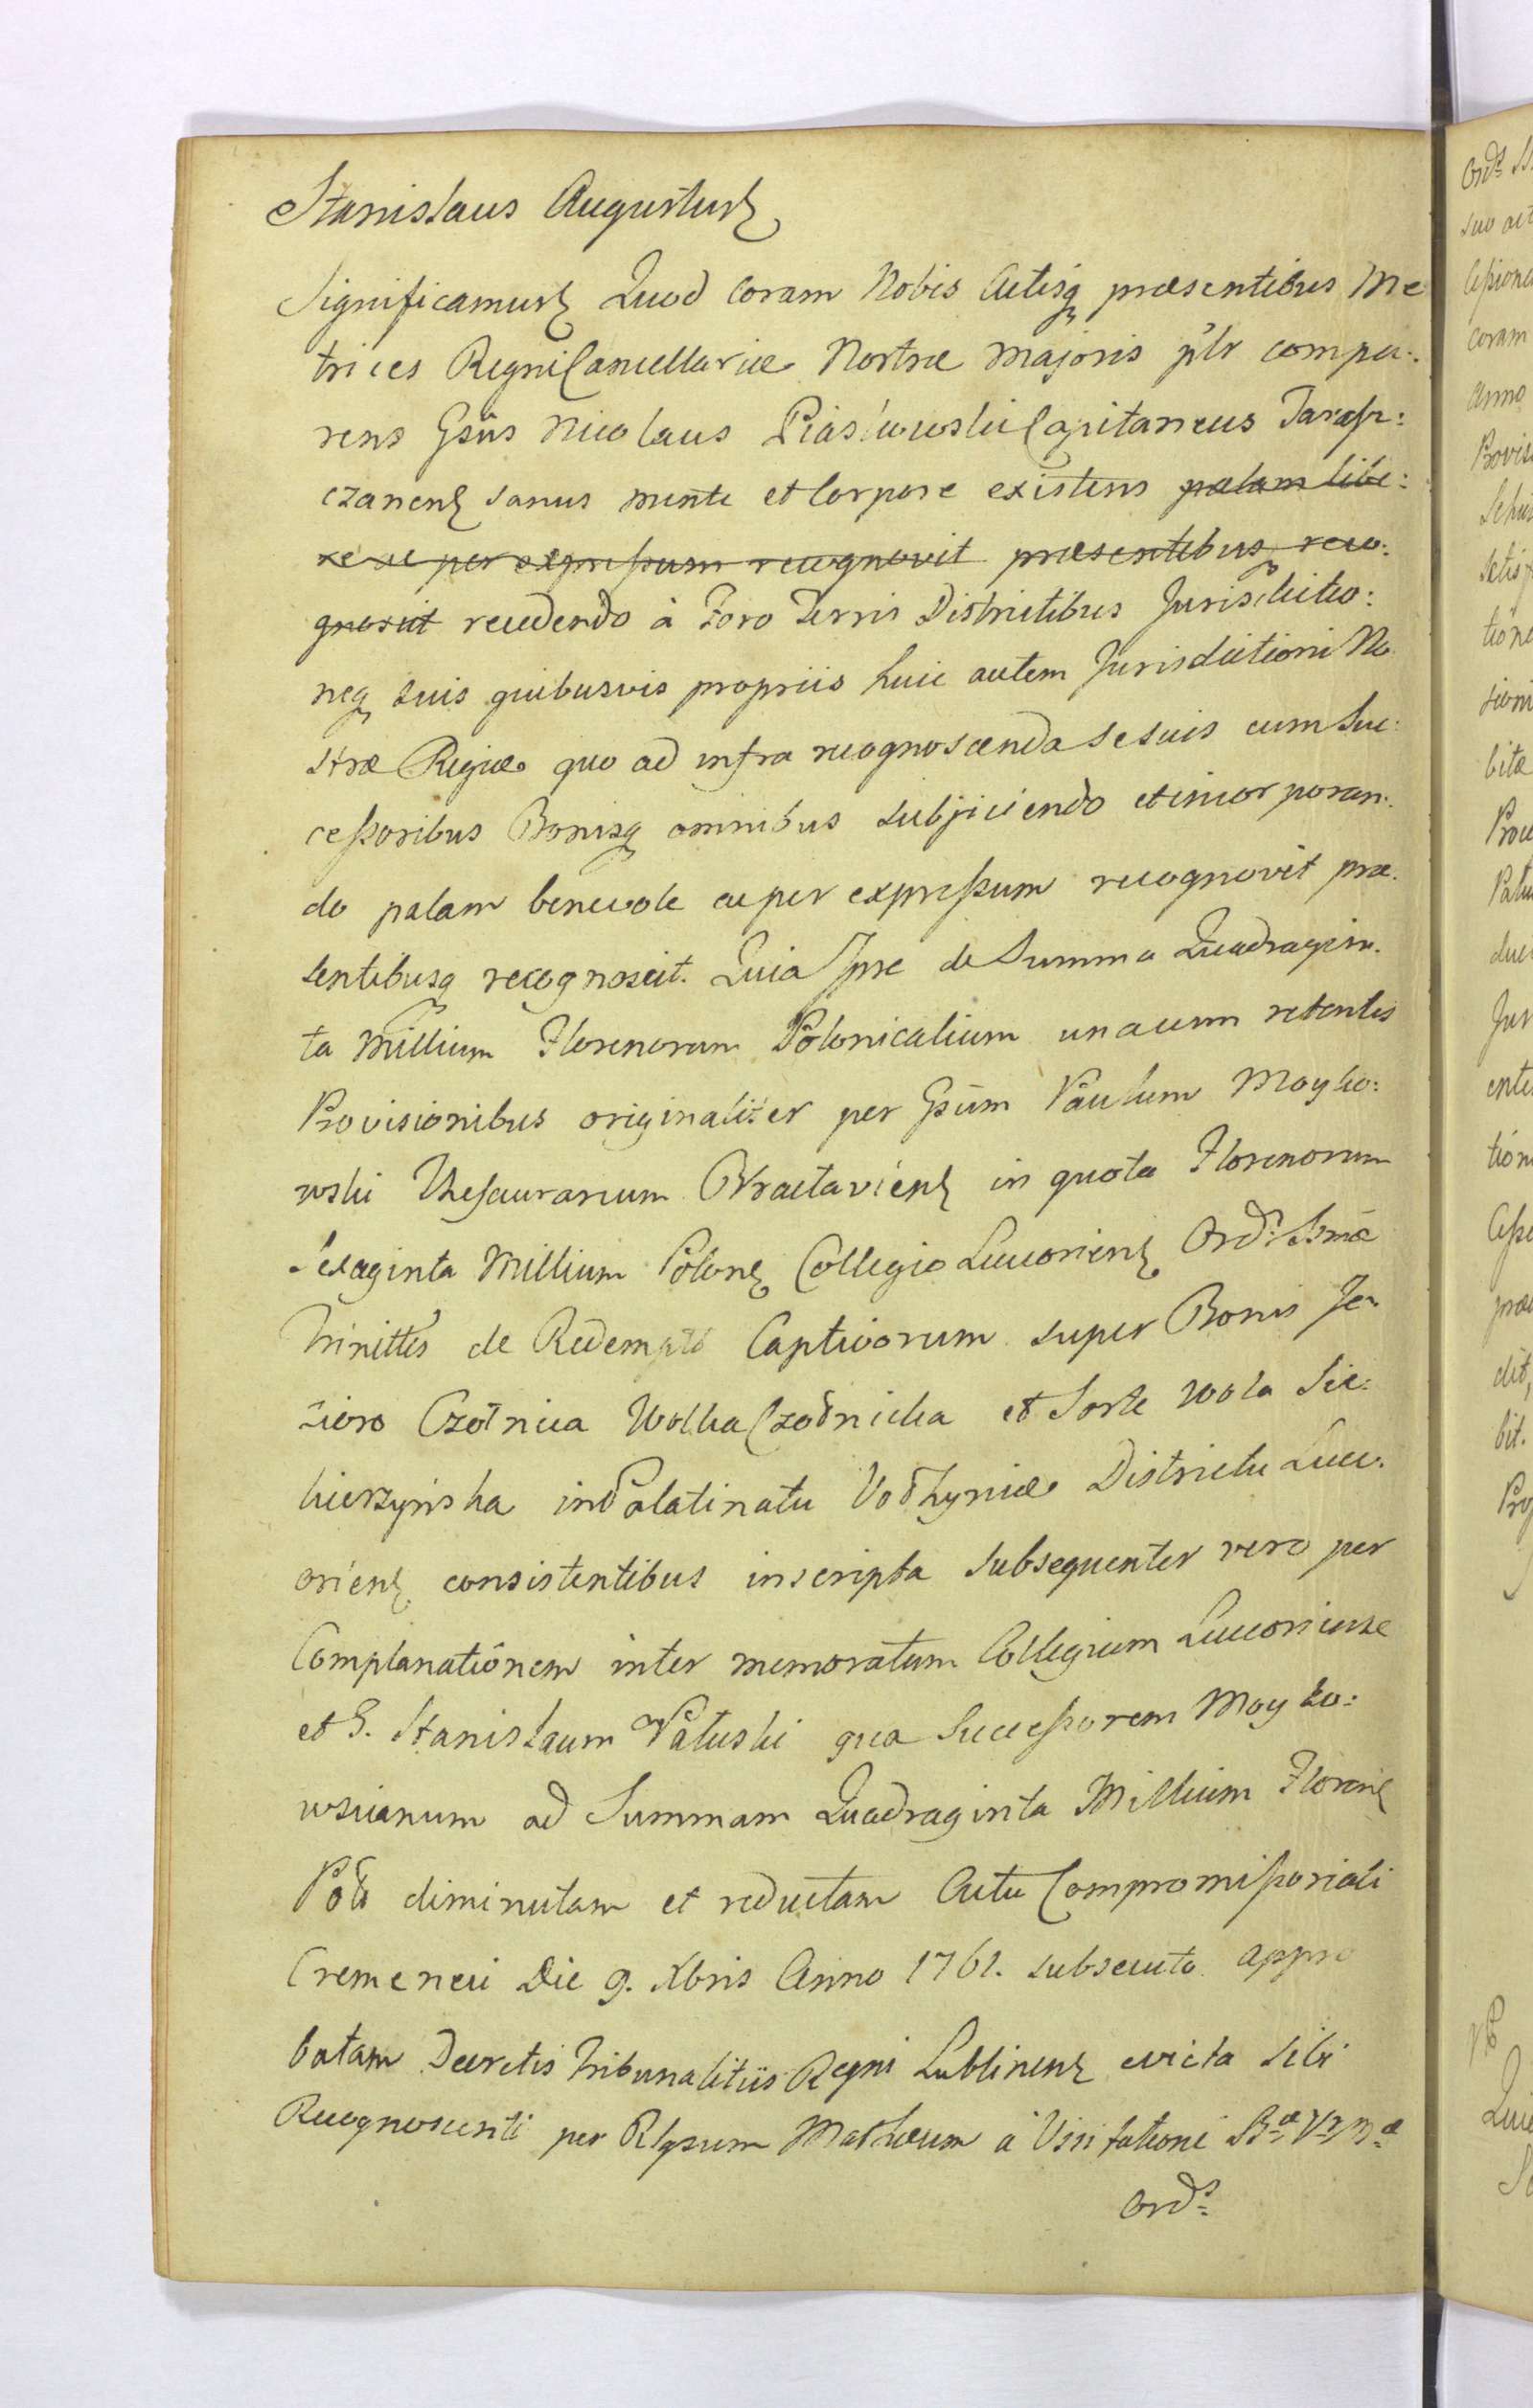 Stanislaus Augustus
Significamus Quod Coram Nobis Actisq præsentibus Me
trices Regni Cancellariæ Nostræ Majoris plr compa:
rens Gsus Nicolaus Piasկowski Capitaneus Taraszc:
czanens sanus mente et Corpore existens palam libe:
re ac per expressum recognovit præsentibusq reco:
gnoscit recedendo à Foro Terris Districtibus Jurisdictio:
neq suis quibusvis propriis huic autem Jurisdictioni No
stræ Regiæ quo ad infra recognoscenda se suis cum Suc:
cessoribus Bonisq omnibus subjiciendo et incorporan:
do palam benevole ac per expressum recognovit præ.
sentibusq recognoscit. Quia Ipse de Summa Quadragin.
ta Millium Florenorum Polonicalium unacum retentis
Provisionibus originaliter per Gsum Paulum Mayko:
wski Thesaurarium Braclaviens in quota Florenorum
Sexaginta Millium Polons Collegio Luceoriens Ord: Ssmæ
Trinittis de Redempte Captivorum super Bonis Je
zioro Czołnica Wolka Czołnicka et Sorte Wola Sie:
kierzynska in Palatinatu Vołhyniæ Districtu Luce.
oriens consistentibus inscripta subsequenter vero per
Complanationem inter memoratum Collegium Luceoriense
et G. Stanislaum Pałuski qua Successorem Mayko:
wscianum ad Summam Quadraginta Millium Florens
Pols diminutam et reductam Actu Compromissoriali
Cremeneci Die 9. Xbris Anno 1761. subsecuto appro
batam Decretis Tribunalitiis Regni Lublinens evicta sibi
Recognoscenti per Rlgsum Mathæum à Visitatione Bæ Vs Mæ
Ords
Ords
suo
coram
Anno